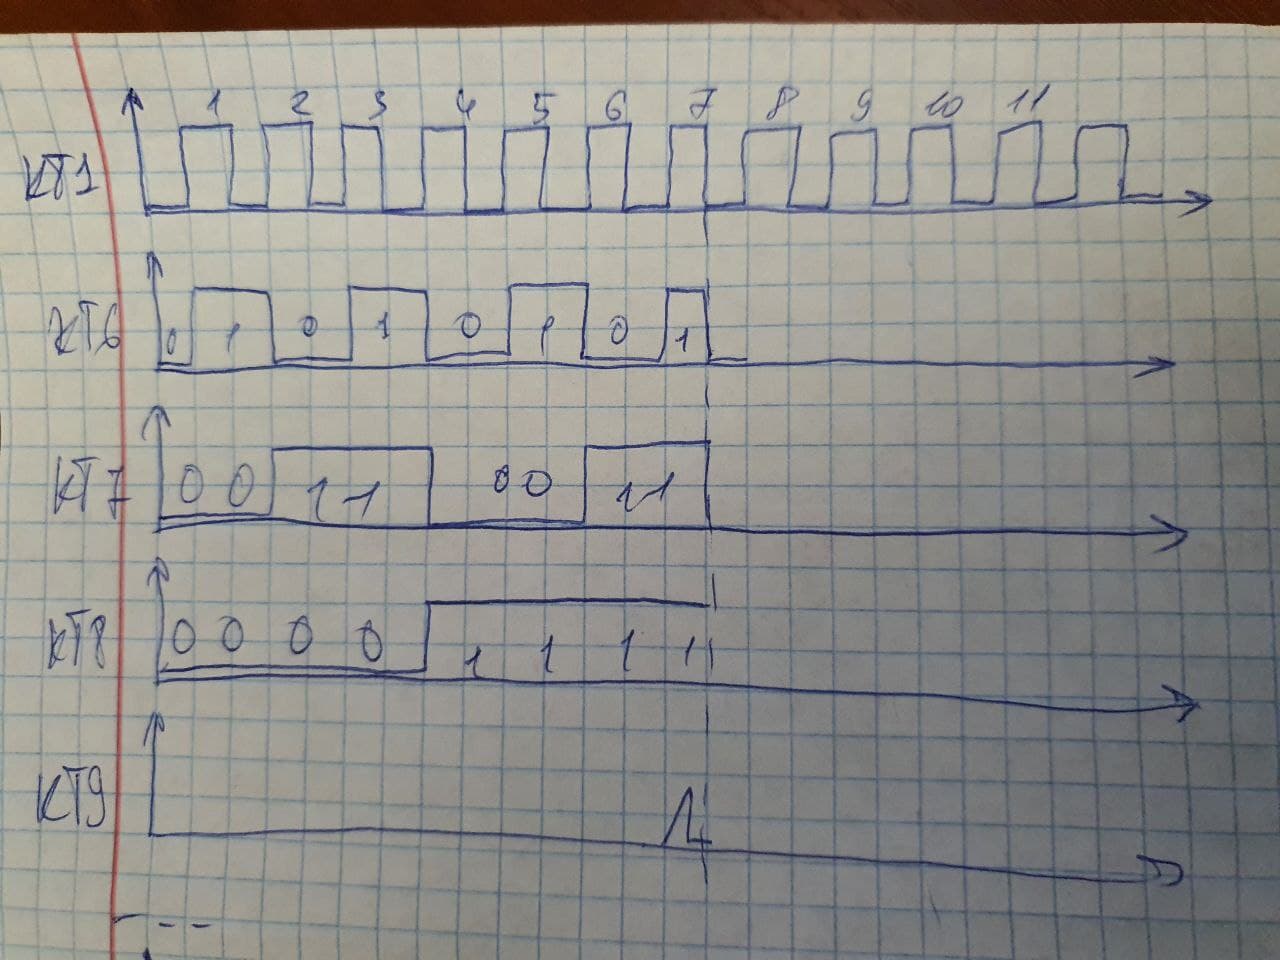 1 2 3 4 5 6 7 8 9 10 11
КТ1
КТ6 0 1 0 1 0 1 0 1
КТ7 0 0 1 1 0 0 1 1
КТ8 0 0 0 0 1 1 1 1
КТ9